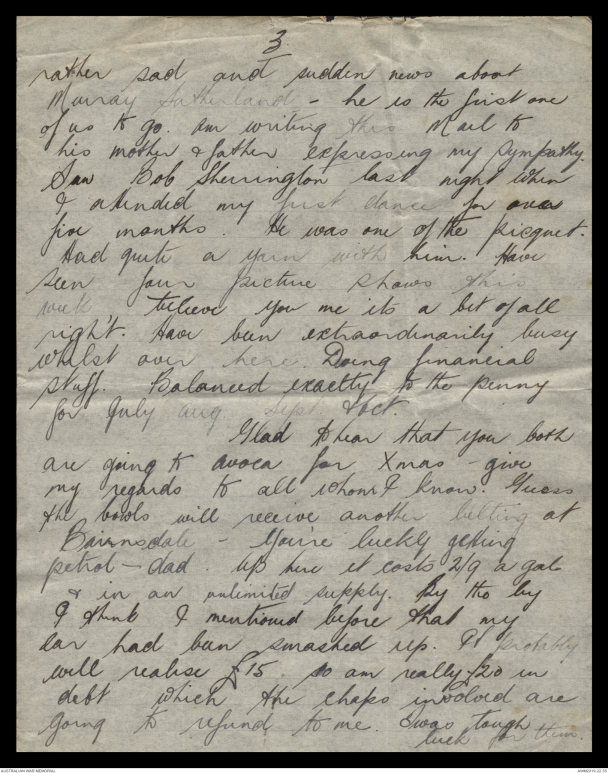 3
rather sad and sudden news about
Murray Sutherland - he is the first one
of us to go. am writing this Mail to
his mother & father expressing my sympathy.
Saw Bob Sherrington last night when
I attended my first dance for over
five months. He was one of the picquet.
Had quite a yarn with him. Have
seen four picture shows this
week believe you me its a bit of all
right. Have been extraordinarily busy
whilst over here. Doing financial
stuff. Balanced exactly to the penny
for July aug. Sept. & Oct.
Glad to hear that you both
are going to avoca for Xmas - give
my regards to all whom I know. Guess
the bowls will receive another belting at
Bairnsdale - You're luckly getting
petrol - dad. Up here it costs 2/9 a gal
& in an unlimited supply. By the by
I think I mentioned before that my
car had been smashed up. It probably
will realise £15. so am really £20 in
debt which the chaps involved are
going to refund to me. Twas tough
luck for them.
AUSTRALIAN WAR MEMORIAL